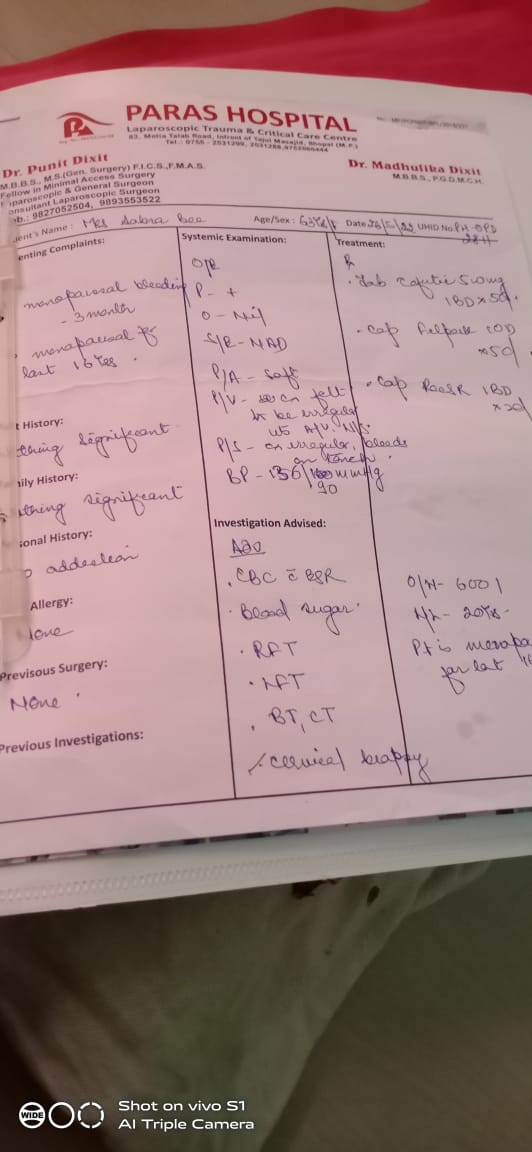 PARAS HOSPITAL
Laparoscopic Trauma & Critical Care Centre
83, Motia Talab Road, Infront of Tajul Masajid, Bhopal (M.P.)
Tel.: 0755 - 2531299,
Dr. Punit Dixit
M.B.B.S., M.S.(Gen. Surgery) F.I.C.S.,F.M.A.S.
Fellow in Minimal Access Surgery
Laparoscopic & General Surgeon
onsultant Laparoscopic Surgeon
ob.: 9827052504, 9893553522
Dr. Madhulika Dixit
M.B.B.S., P.G.D.M.C.H.
ient's Name : Mrs Age/Sex : Date UHID No PH-OPD
2811
enting Complaints:
menopausal bleeding
- 3 month
menopausal for
last 16 yrs.
t History:
thing significant
ily History:
thing significant
sonal History:
Allergy:
None
Previsous Surgery:
None
Previous Investigations:
Systemic Examination:
O/E
P - +
O - Nil
S/E - NAD
P/A - Soft
P/V - felt
to be irregular
P/S - irregular, bleeds
on touch.
BP - 136/90 mmHg
Investigation Advised:
Adv
. CBC c ESR
. Blood sugar.
. RFT
. LFT
. BT, CT
cervical biopsy
Treatment:
Rx
. Tab 500mg
1BD x 5d.
. Cap 1OD
x5d
. Cap 1BD
O/H - 6001
Pt is menopa
for last 16
WIDE
Shot on vivo S1
AI Triple Camera